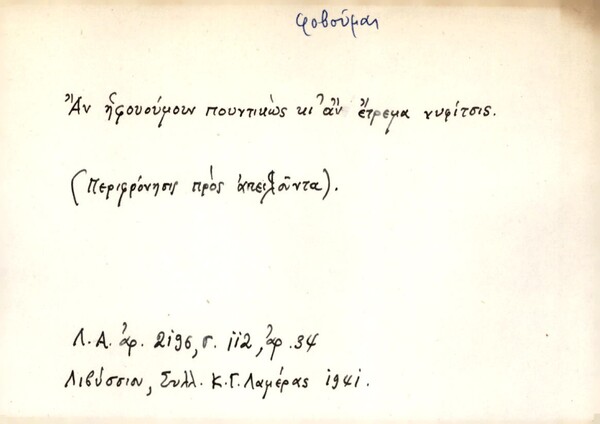 φοβούμαι
Ἂν ἠφουούμουν πουντικὼς κι' ἂν ἔτρεμα νυφίτσις.
(Περιφρόνησις πρὸς ἀπειλοῦντα).
Λ.Α. ἀρ. 2196, σ. 112, ἀρ. 34
Λιβύσσιον, Συλλ. Κ.Γ. Λαμέρας 1941.